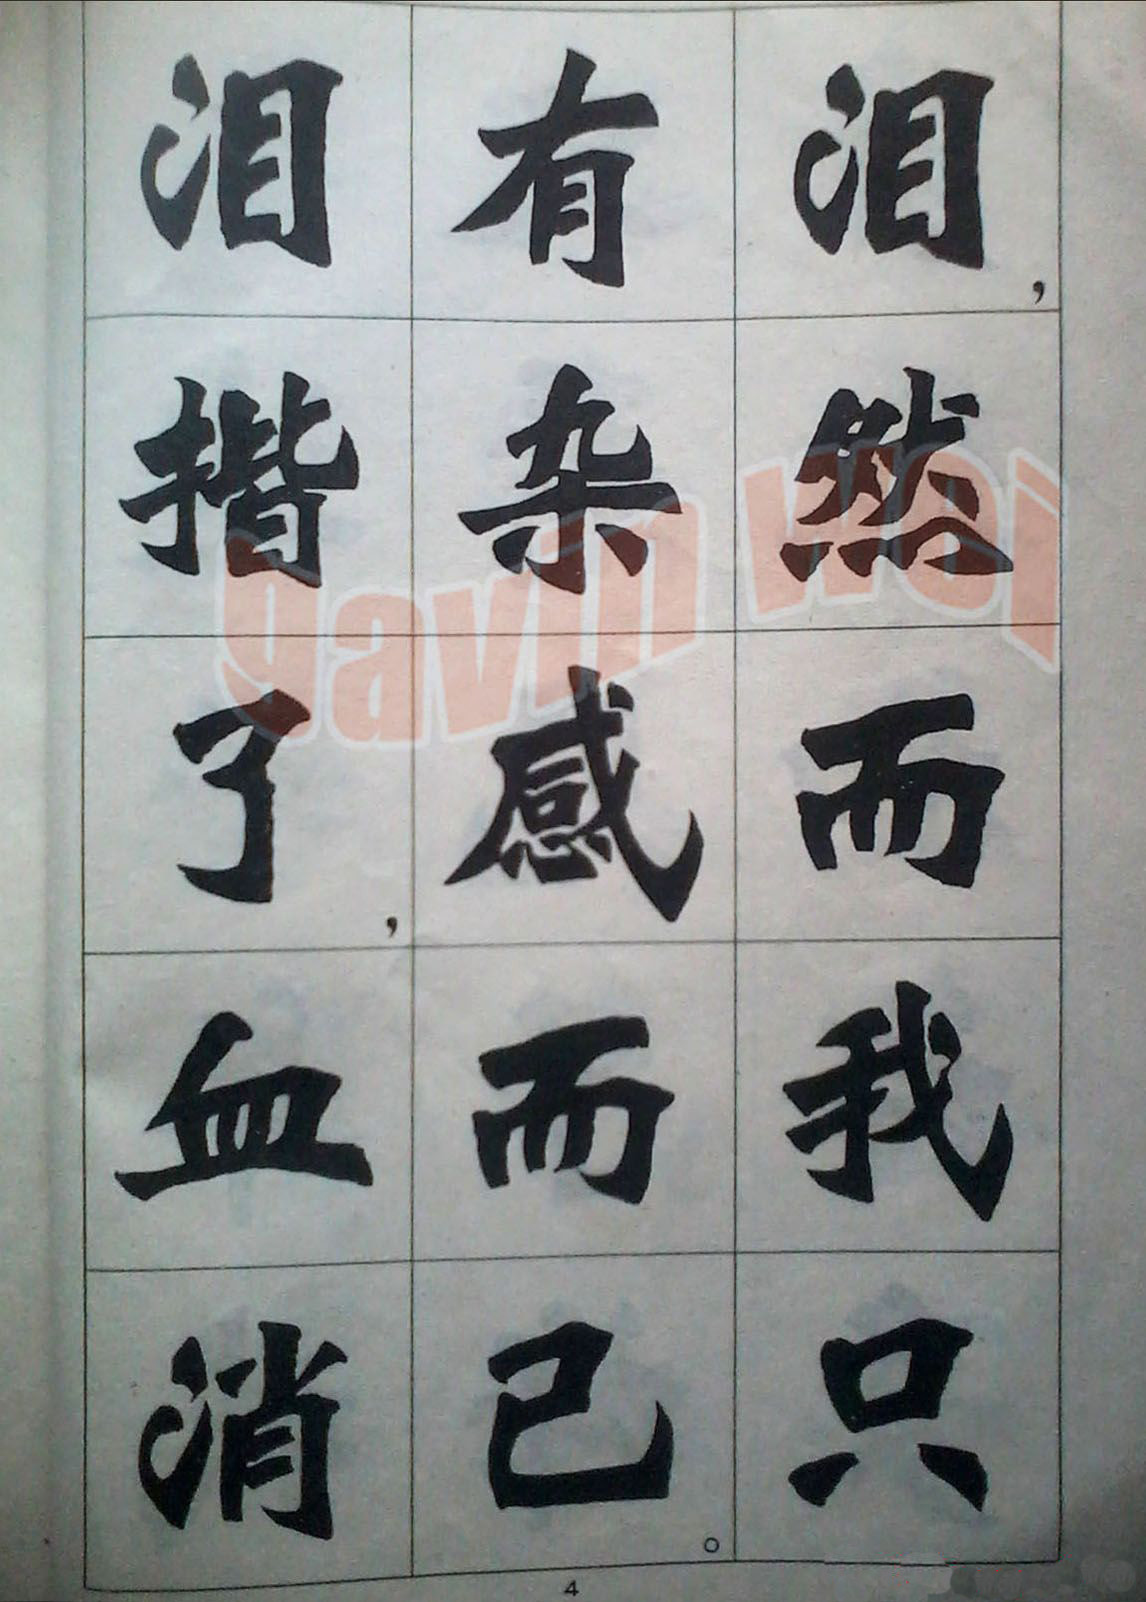 泪，然而我只
有杂感而已。
泪揩了，血消
4
gavin wei